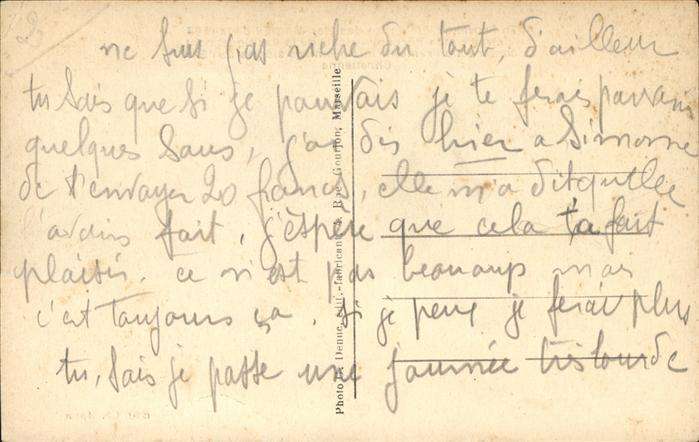 ne suis pas riche du tout, d'ailleur
tu sais que si je pourrais je te ferais parvenir
quelques sous, j'ai dis hier a Simone
de t'envoyer 20 francs, elle m'a dit qu'elle
l'avais fait, j'éspère que cela t'a fait
plaisir. ce n'est pas beaucoup mais
c'est toujours ça. Si je peux je ferai plus
tu, sais je passe une journée très lourde
Photo D. Denne, édit.-fabricant, Rue Gourjon, Marseille